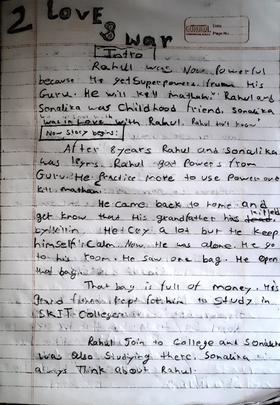 2 LOVE
& war
Date
Page No.
Intro
Rahul was Now powerful
because He get Superpowers from His
Guru. He will kill mathan. Rahul and
Sonalika was Childhood friend. Sonalika
was in Love with Rahul. Rahul don't know
Now Story begins:
After 8 years Rahul and Sonalika
was 18yrs. Rahul got powers from
Guru. He practice more to use Power and
kill mathan.
He came back to home and
get know that His grandfather has killed
by villin. He Cry a lot but He keep
himself Calm. Now He was alone. He go
to his room. He saw one bag. He open
that bag.
That bag is full of money. His
grand father kept for him to Study in
SKIT College
Rahul Join to College and Sonalika
was also Studying there. Sonalika
always Think about Rahul.